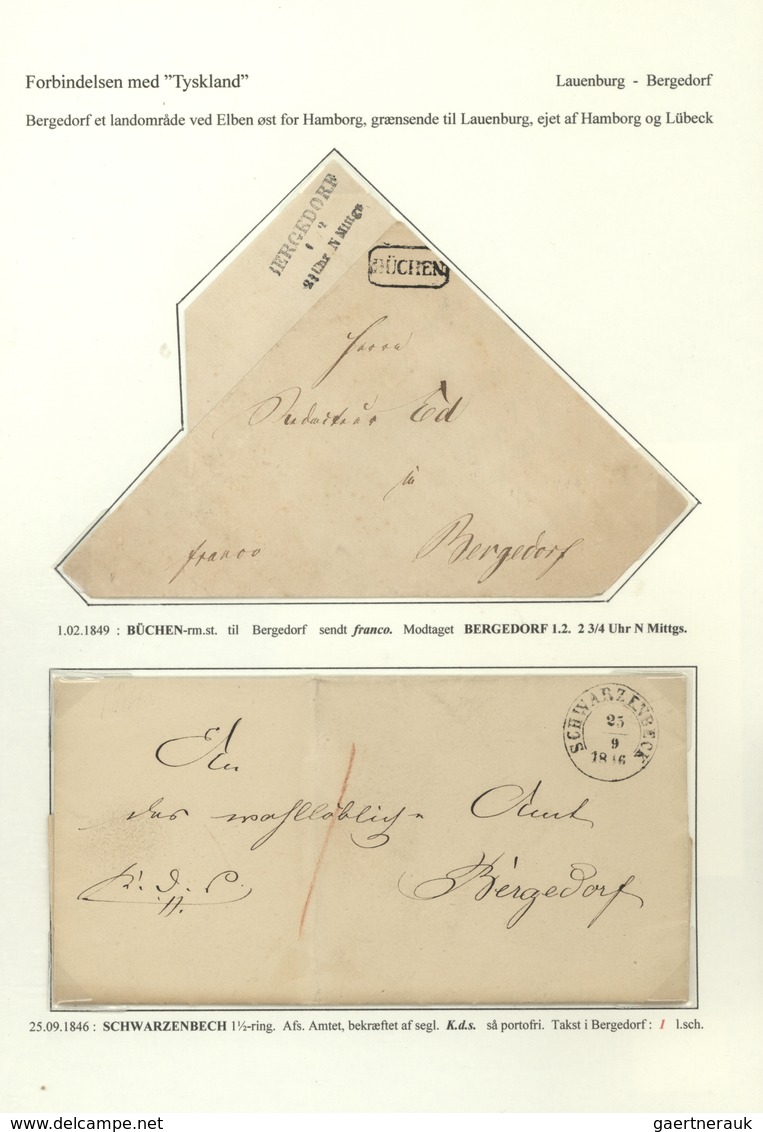 Forbindelsen med ”Tyskland”
Lauenburg - Bergedorf
Bergedorf et landområde ved Elben øst for Hamborg, grænsende til Lauenburg, ejet af Hamborg og Lübeck
BERGEDORF
1/2
2¾ Uhr N Mittgs
BÜCHEN
Herrn
Redacteur Ed
in
Bergedorf
franco
1.02.1849 : BÜCHEN-rm.st. til Bergedorf sendt franco. Modtaget BERGEDORF 1.2. 2 3/4 Uhr N Mittgs.
SCHWARZENBECK
25
9
1846
An
das wohllöbliche Amt
K. d. S.
Bergedorf
1
25.09.1846 : SCHWARZENBECH 1½-ring. Afs. Amtet, bekræftet af segl. K.d.s. så portofri. Takst i Bergedorf : 1 l.sch.
Delcampe.net
gaertnerauk